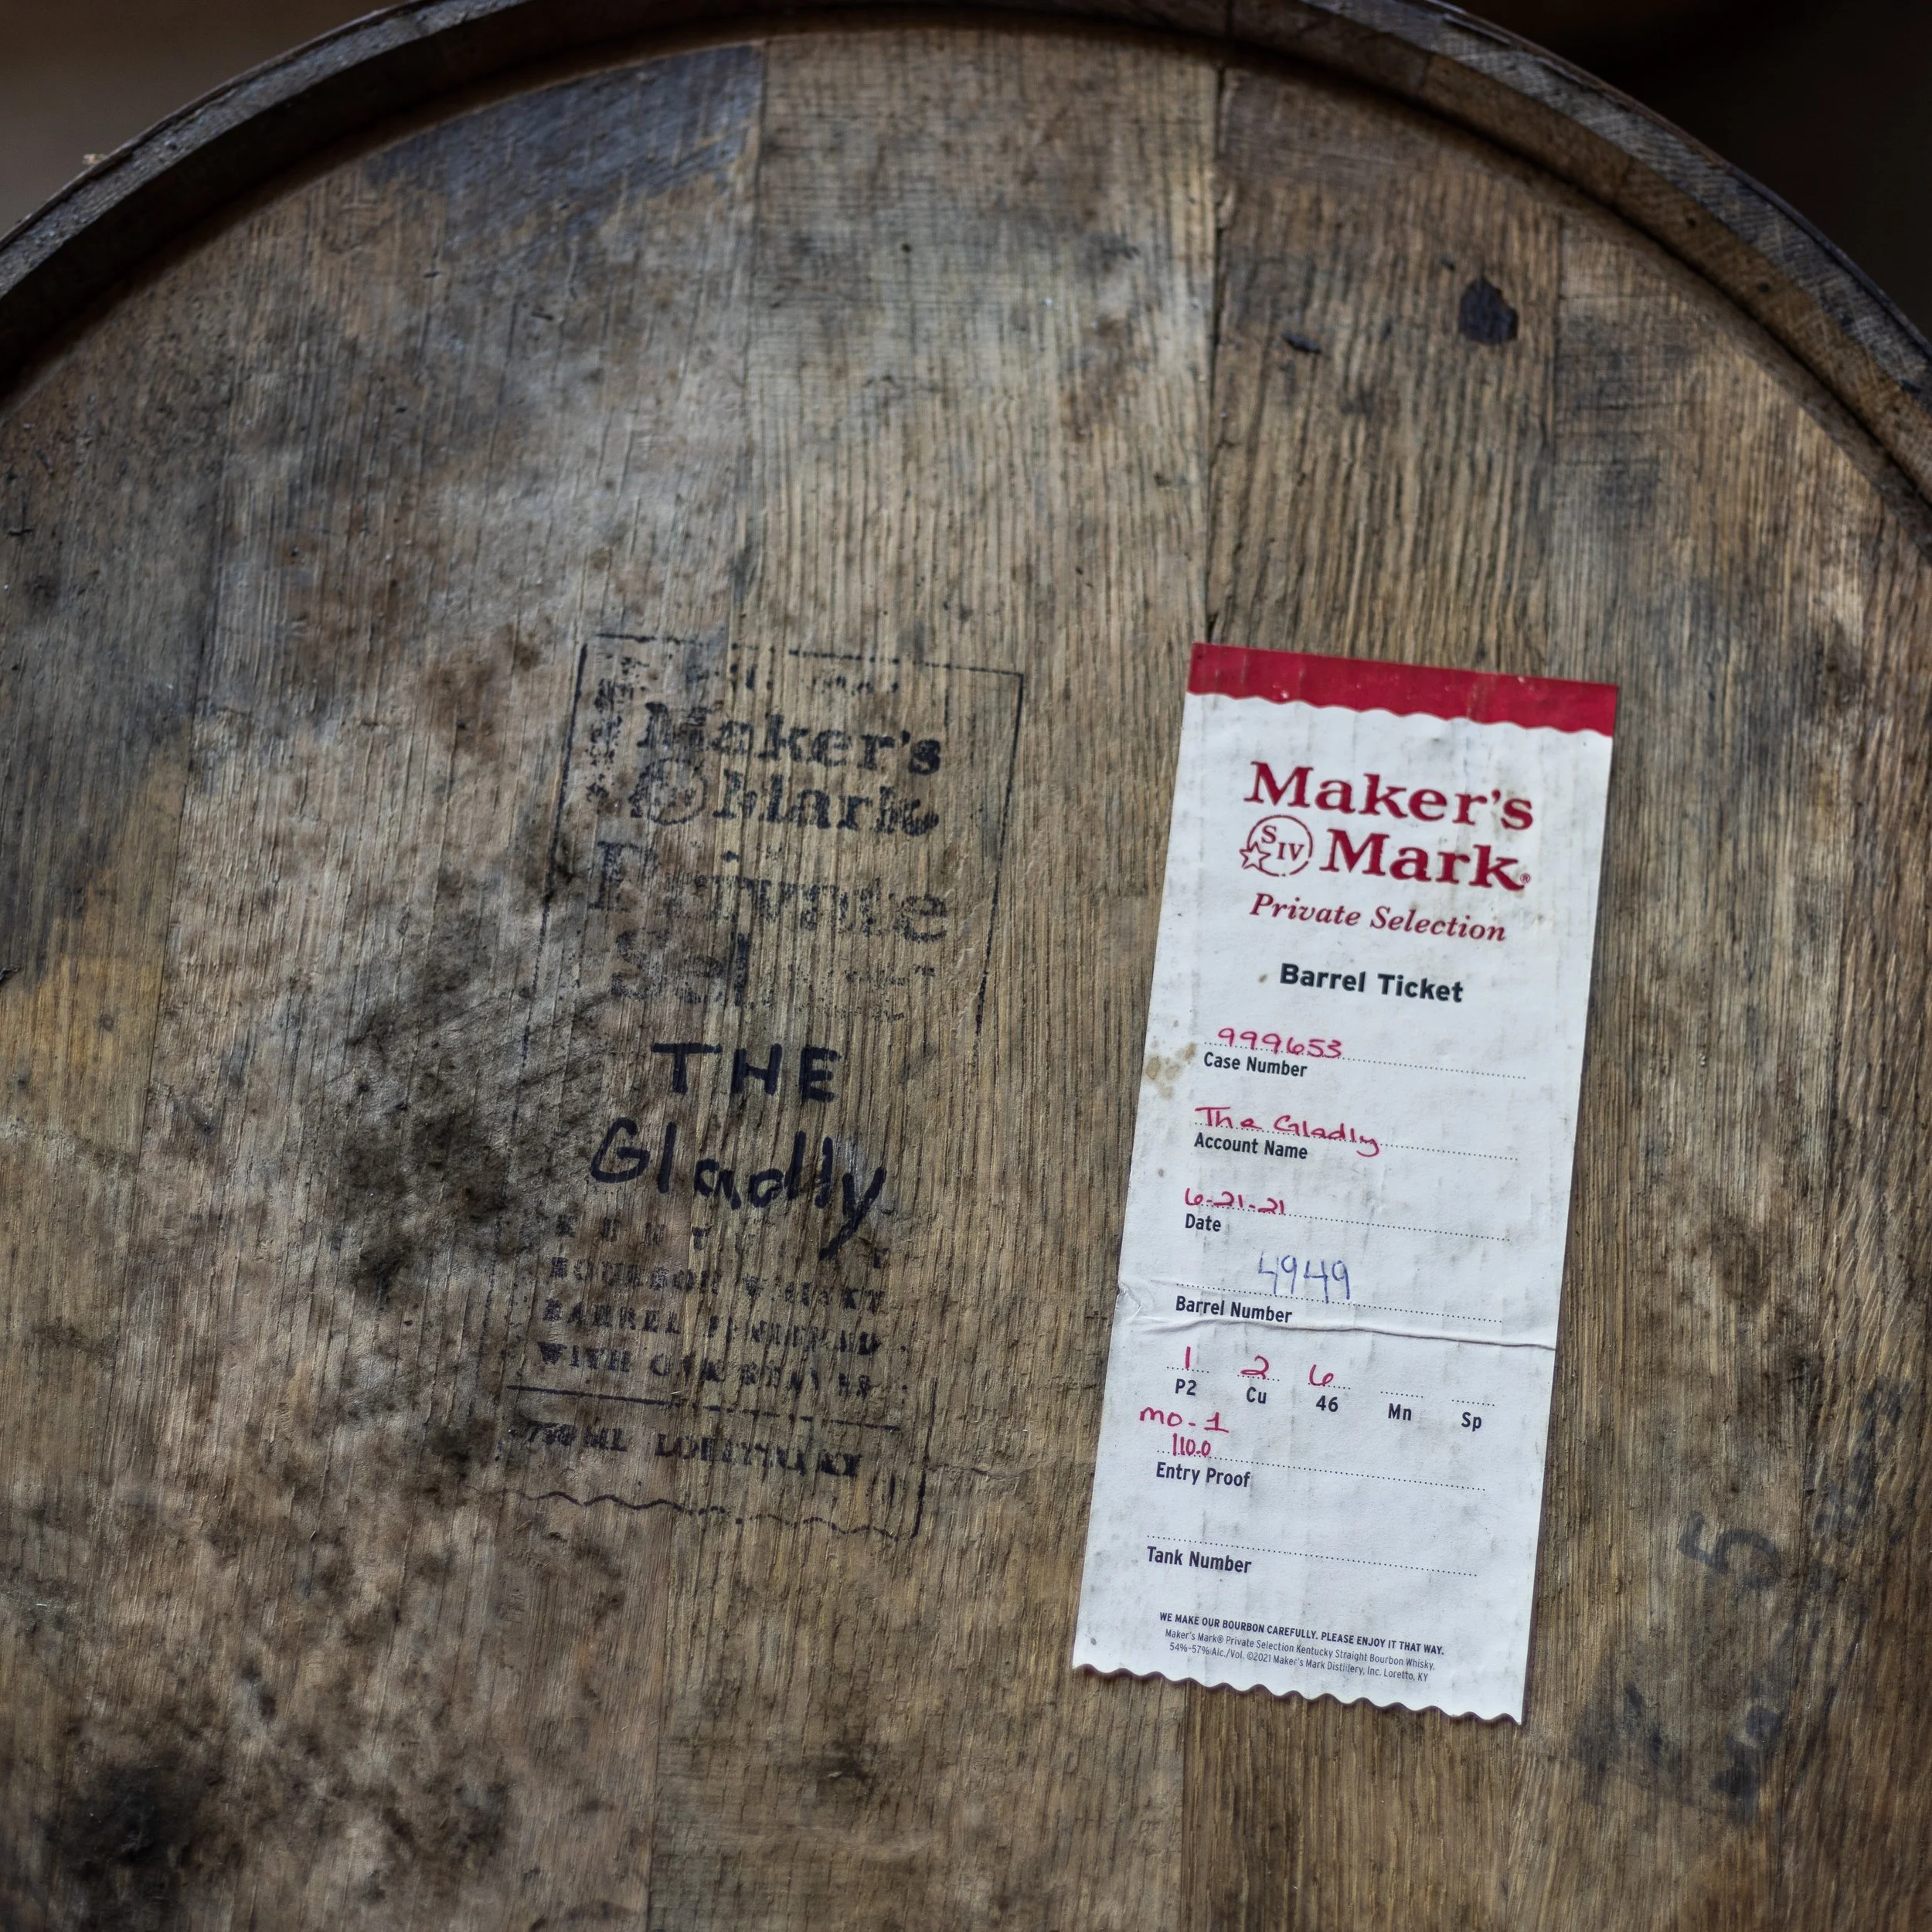 Maker's
Mark
Private
THE
Gladly
BOURBON WHISKY
BARREL FINISHED
WITH OAK STAVES
750ML LORETTO KY
Maker's
S IV Mark®
Private Selection
Barrel Ticket
999653
Case Number
The Gladly
Account Name
6-21-21
Date
4949
Barrel Number
1 2 6
P2 Cu 46 Mn Sp
mo-1
110.0
Entry Proof
Tank Number
WE MAKE OUR BOURBON CAREFULLY. PLEASE ENJOY IT THAT WAY.
Maker's Mark® Private Selection Kentucky Straight Bourbon Whisky,
54%-57% Alc./Vol. ©2021 Maker's Mark Distillery, Inc. Loretto, KY
5